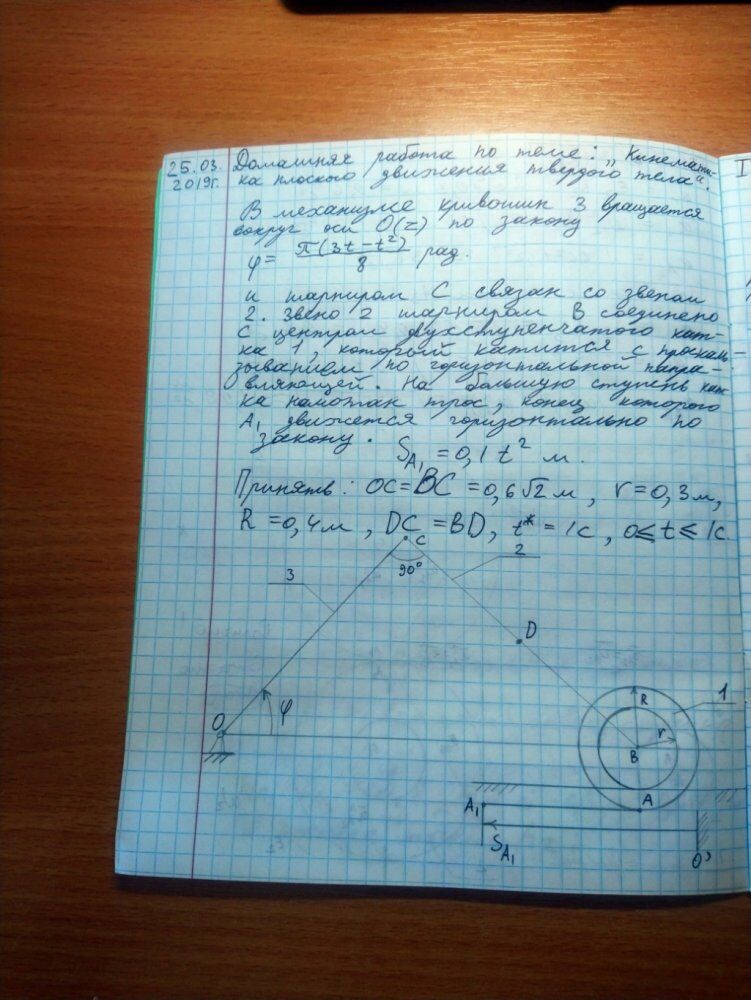 25.03. Домашняя работа по теме: „Кинемати-
2019г. ка плоского движения твердого тела“.
В механизме кривошип 3 вращается
вокруг оси O(z) по закону
φ = π(3t-t²)/8 рад.
и шарниром С связан со звеном
2. Звено 2 шарниром В соединено
с центром двухступенчатого кат-
ка 1, который катится с проскаль-
зыванием по горизонтальной напра-
вляющей. На большую ступень кат-
ка намотан трос, конец которого
A₁ движется горизонтально по
закону.
S_A₁ = 0,1 t² м.
Принять: OC=BC=0,6√2 м, r=0,3м,
R=0,4м, DC=BD, t*=1c, 0≤t≤1c.
C
90°
2
3
D
O
φ
R
1
r
B
A₁
A
S_A₁
O'